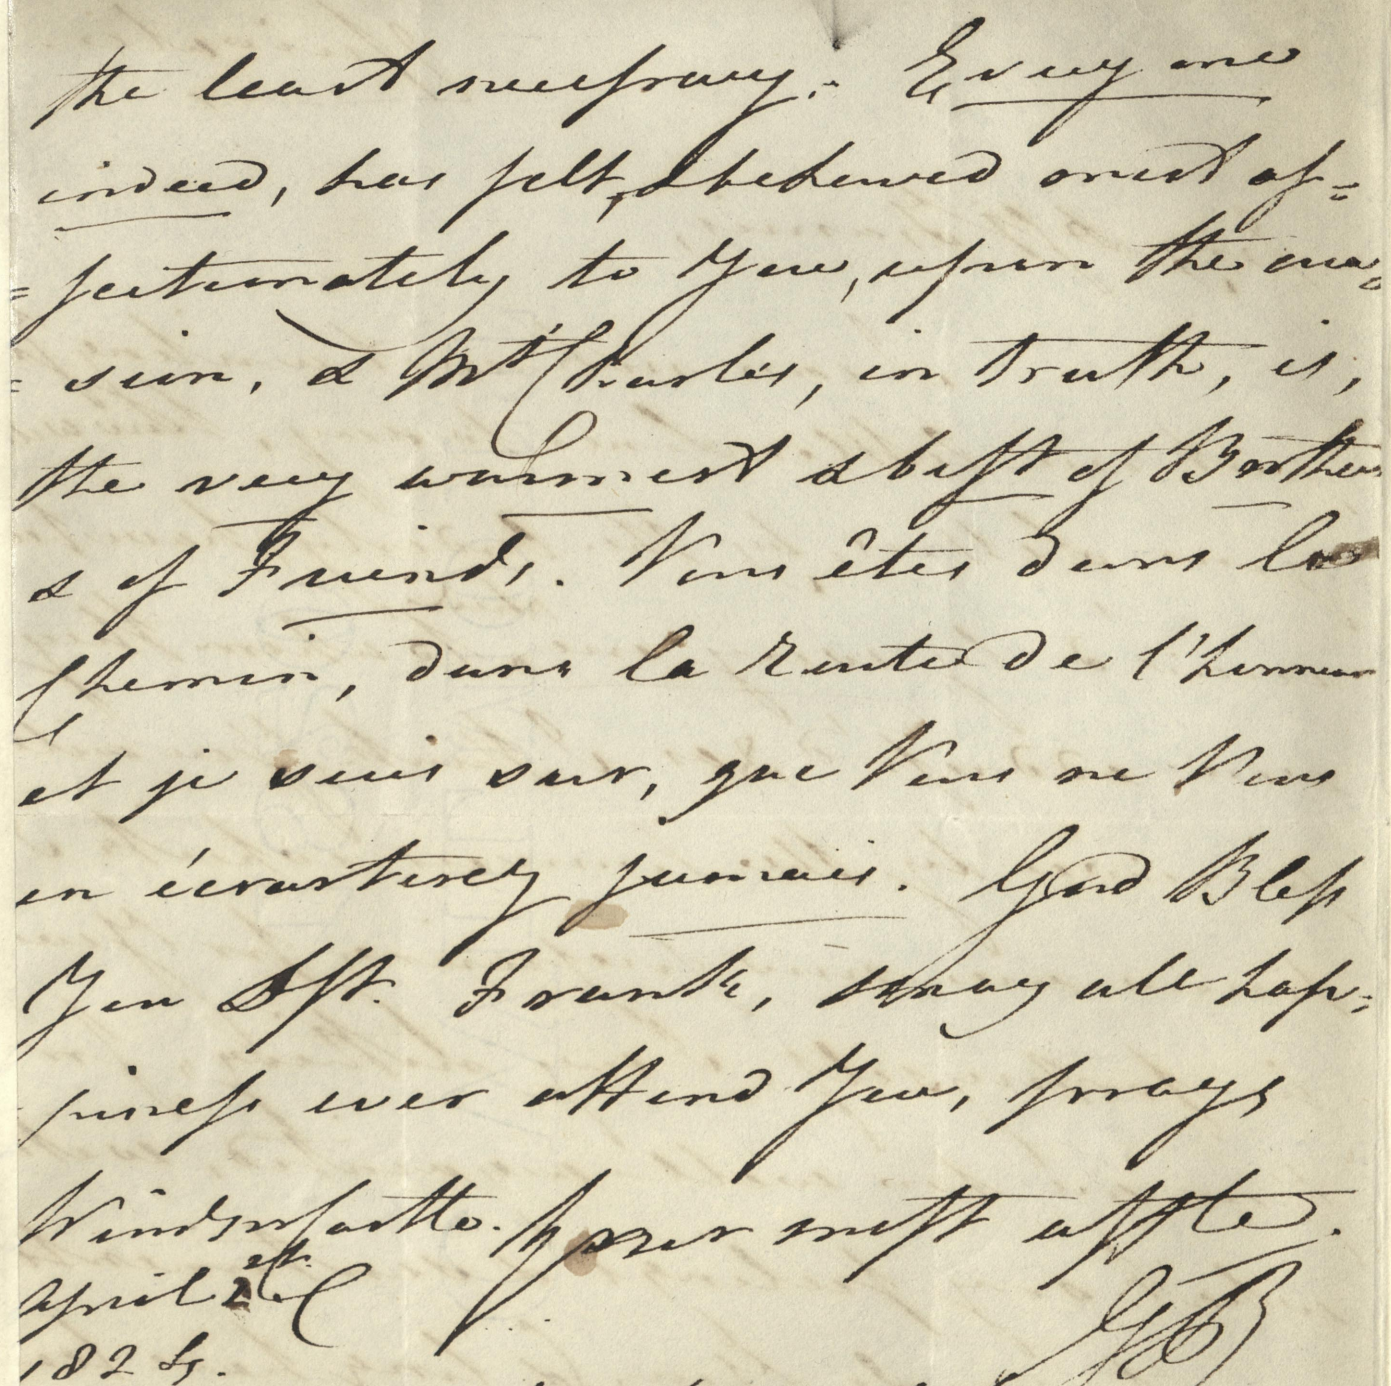 the least necessary. Every one
indeed, has felt, & behaved most af=
=fectionately to You, upon the occa=
=sion, & Mt Charles, in truth, is,
the very warmest & best of Brothers
& of Friends. Vous êtes dans le
Chemin, dans la route de l'honneur
et je suis sur, que Vous ne Vous
en écarterez jamais. God Bless
You Dst. Frank, may all hap=
piness ever attend You, prays
Windsor Castle. Your most affte.
April
1824. GR